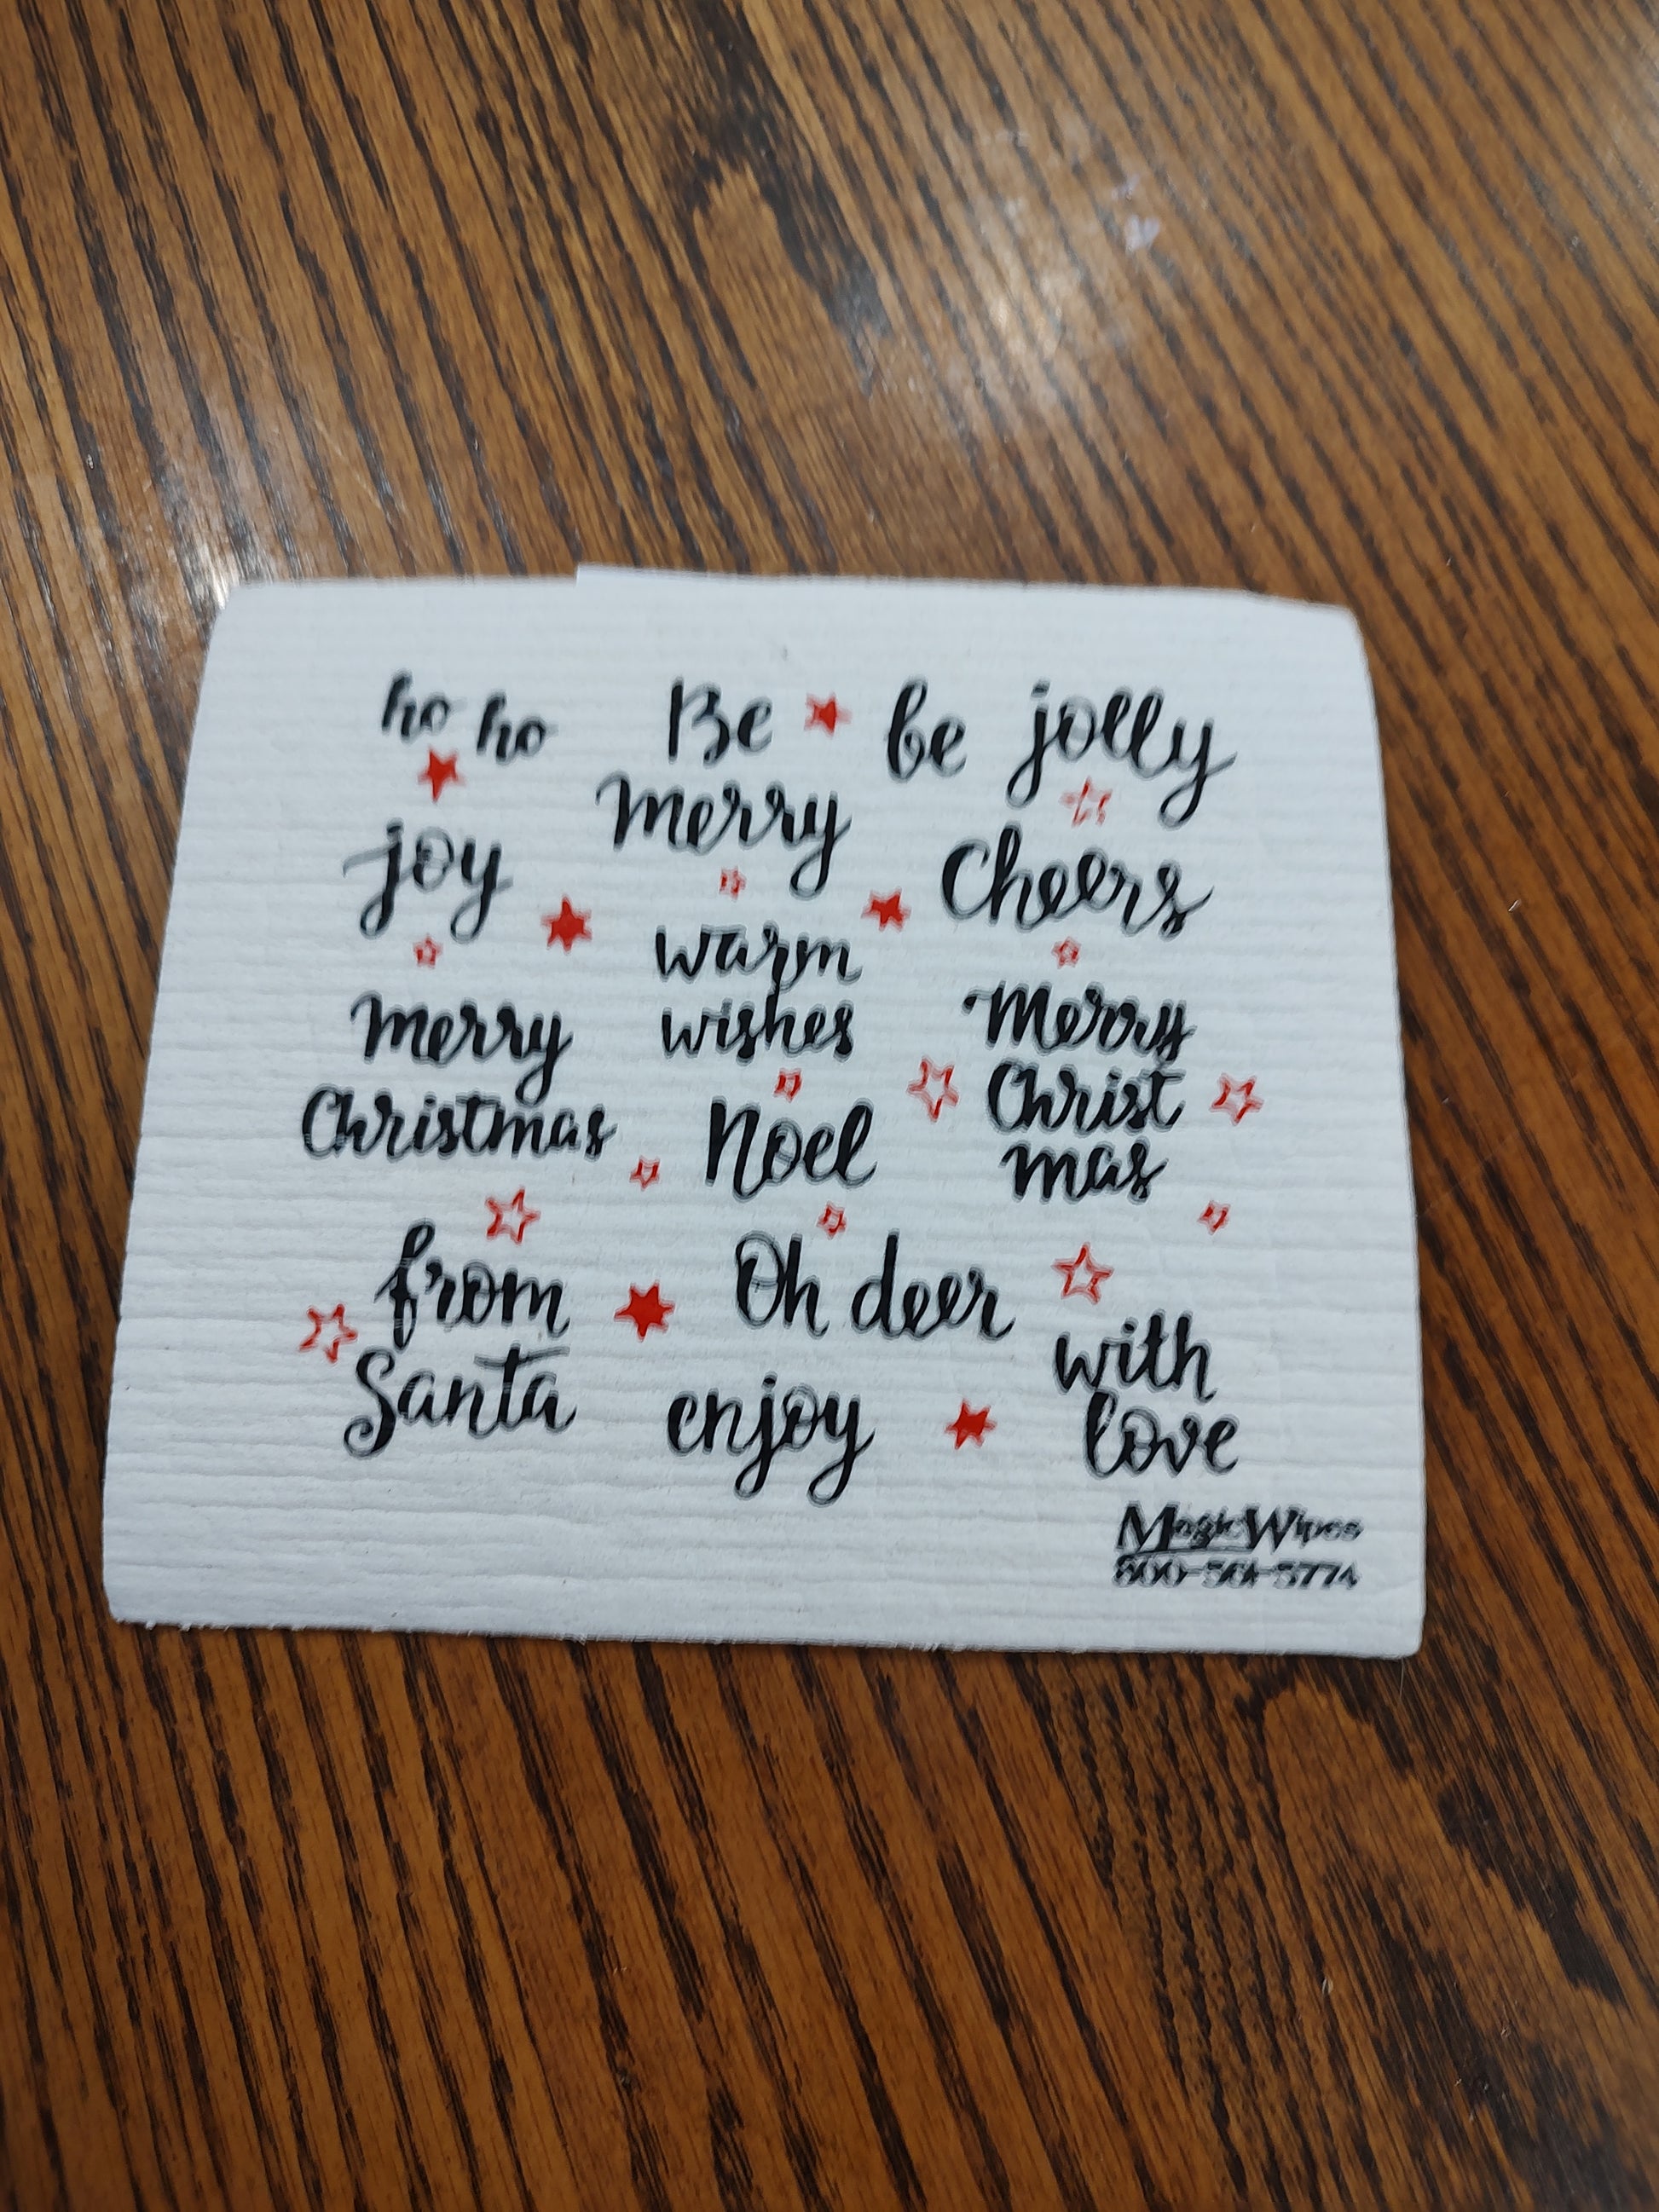 ho ho
Be
merry
be jolly
joy
Cheers
warm
wishes
merry
Christmas
Merry
Christ
mas
Noel
from
Santa
Oh deer
with
love
enjoy
MagicWipes